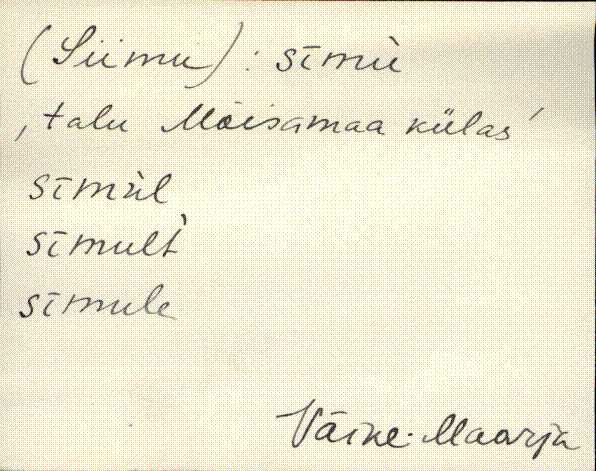 (Siimu) : sīmù
‚talu Mõisamaa külas’
sīmùl
sīmult̀
sīmule
Väike-Maarja